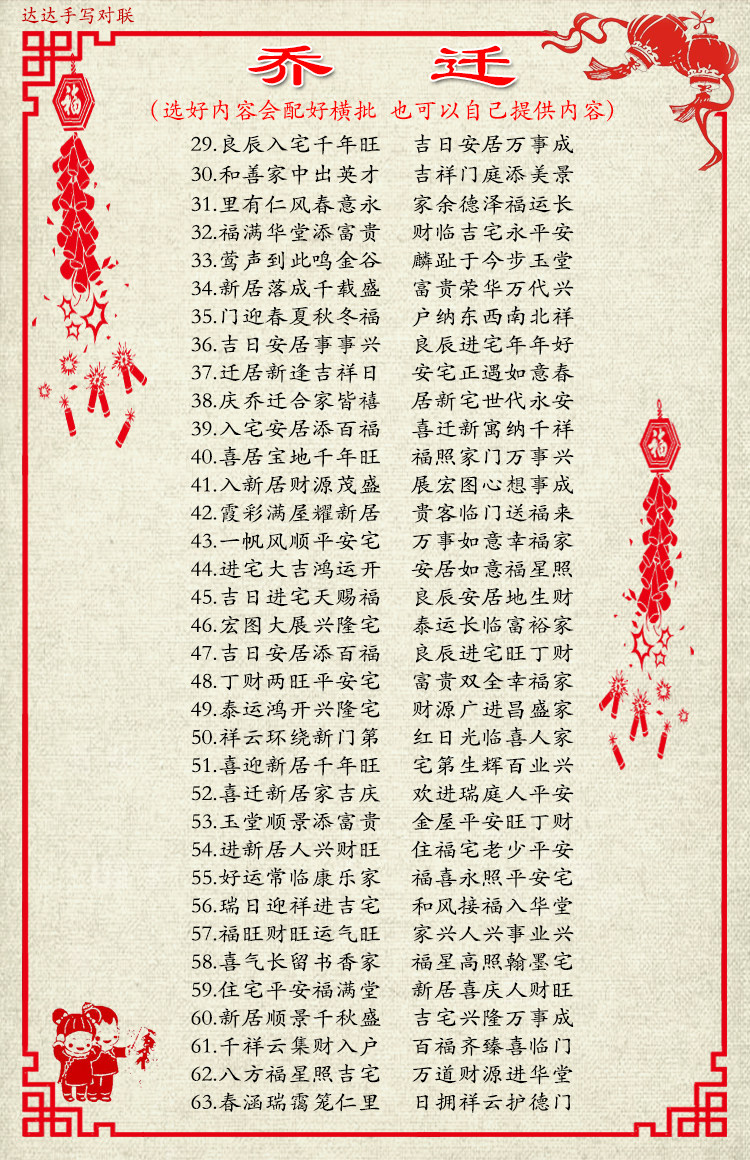 达达手写对联
乔 迁
（选好内容会配好横批 也可以自己提供内容）
29.良辰入宅千年旺 吉日安居万事成
30.和善家中出英才 吉祥门庭添美景
31.里有仁风春意永 家余德泽福运长
32.福满华堂添富贵 财临吉宅永平安
33.莺声到此鸣金谷 麟趾于今步玉堂
34.新居落成千载盛 富贵荣华万代兴
35.门迎春夏秋冬福 户纳东西南北祥
36.吉日安居事事兴 良辰进宅年年好
37.迁居新逢吉祥日 安宅正遇如意春
38.庆乔迁合家皆禧 居新宅世代永安
39.入宅安居添百福 喜迁新寓纳千祥
40.喜居宝地千年旺 福照家门万事兴
41.入新居财源茂盛 展宏图心想事成
42.霞彩满屋耀新居 贵客临门送福来
43.一帆风顺平安宅 万事如意幸福家
44.进宅大吉鸿运开 安居如意福星照
45.吉日进宅天赐福 良辰安居地生财
46.宏图大展兴隆宅 泰运长临富裕家
47.吉日安居添百福 良辰进宅旺丁财
48.丁财两旺平安宅 富贵双全幸福家
49.泰运鸿开兴隆宅 财源广进昌盛家
50.祥云环绕新门第 红日光临喜人家
51.喜迎新居千年旺 宅第生辉百业兴
52.喜迁新居家吉庆 欢进瑞庭人平安
53.玉堂顺景添富贵 金屋平安旺丁财
54.进新居人兴财旺 住福宅老少平安
55.好运常临康乐家 福喜永照平安宅
56.瑞日迎祥进吉宅 和风接福入华堂
57.福旺财旺运气旺 家兴人兴事业兴
58.喜气长留书香家 福星高照翰墨宅
59.住宅平安福满堂 新居喜庆人财旺
60.新居顺景千秋盛 吉宅兴隆万事成
61.千祥云集财入户 百福齐臻喜临门
62.八方福星照吉宅 万道财源进华堂
63.春涵瑞霭笼仁里 日拥祥云护德门
福
福